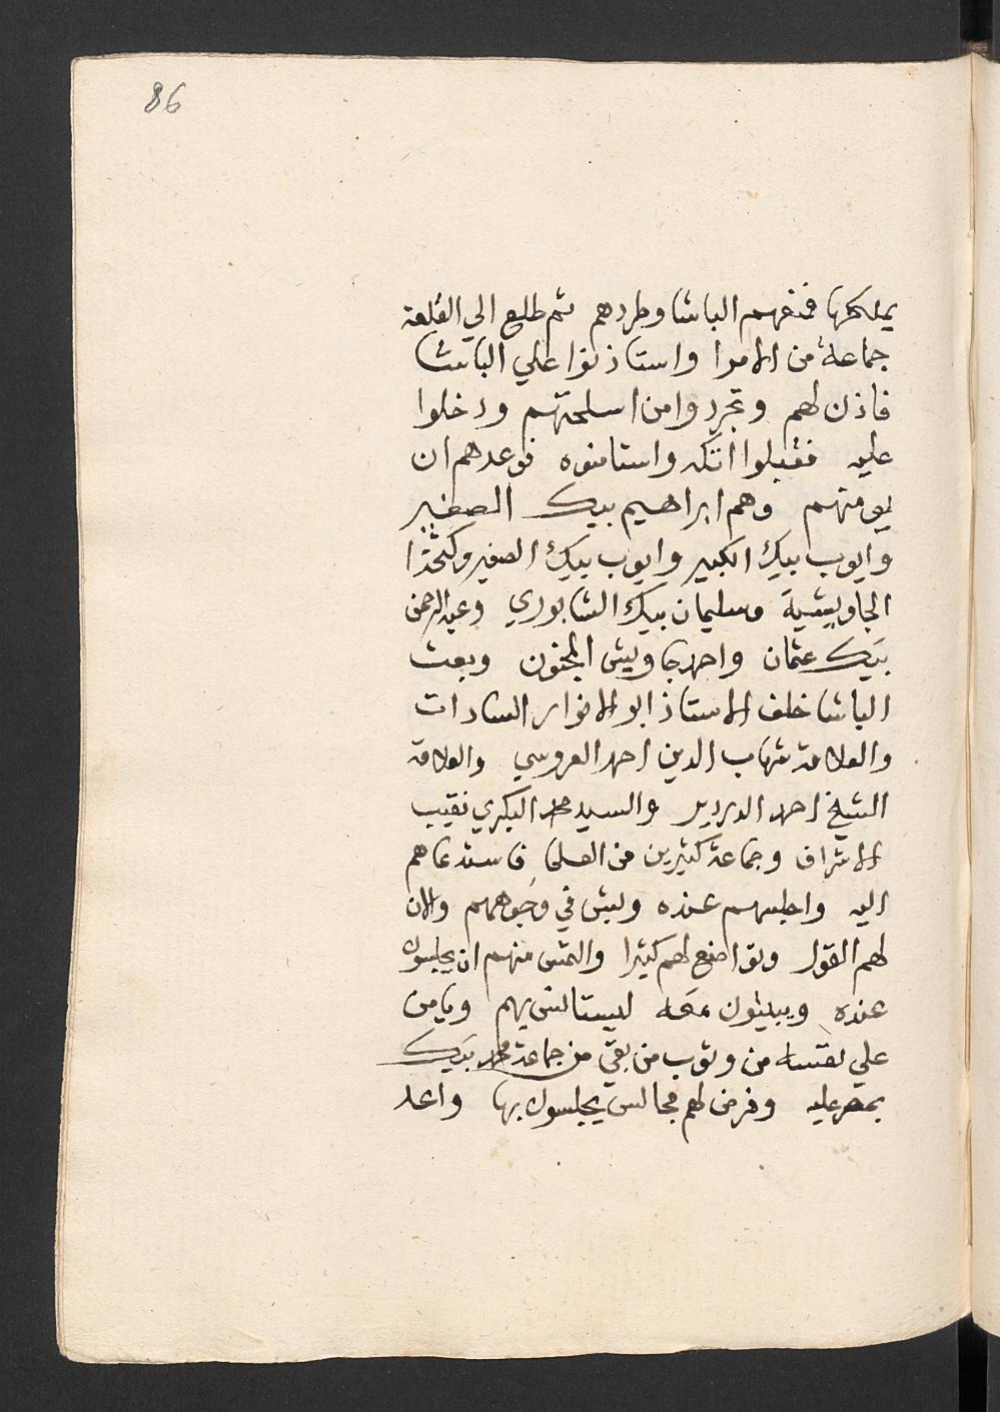 86
يملكها فمنعهم الباشا وطردهم ثم طلع الي القلعة
جماعة من الامرا واستاذنوا علي الباشا
فاذن لهم وتجردوا من اسلحتهم ودخلوا
عليه فقبلوا اتكه واستامنوه فوعدهم ان
يومنهم وهم ابراهيم بيك الصغير
وايوب بيك الكبير وايوب بيك الصغير وكتخدا
الجاويشية وسليمان بيك الشابوري وعبد الرحمن
بيك عثمان واحمد جاويش المجنون وبعث
الباشا خلف الاستاذ ابو الانوار السادات
والعلامة شهاب الدين احمد العروسي والعلامة
الشيخ احمد الدردير والسيد محمد البكري نقيب
الاشراف وجماعة كثيرين من العلما فاستدعاهم
اليه واجلسهم عنده وبش في وجوههم والان
لهم القول وتواضع لهم كثيرا والتمس منهم ان يجلسوا
عنده ويبيتون معه ليستانس بهم ويامن
علي نفسه من وثوب من بقي من جماعة محمد بيك
بمصر عليه وفرض لهم مجالس يجلسون بها واعد